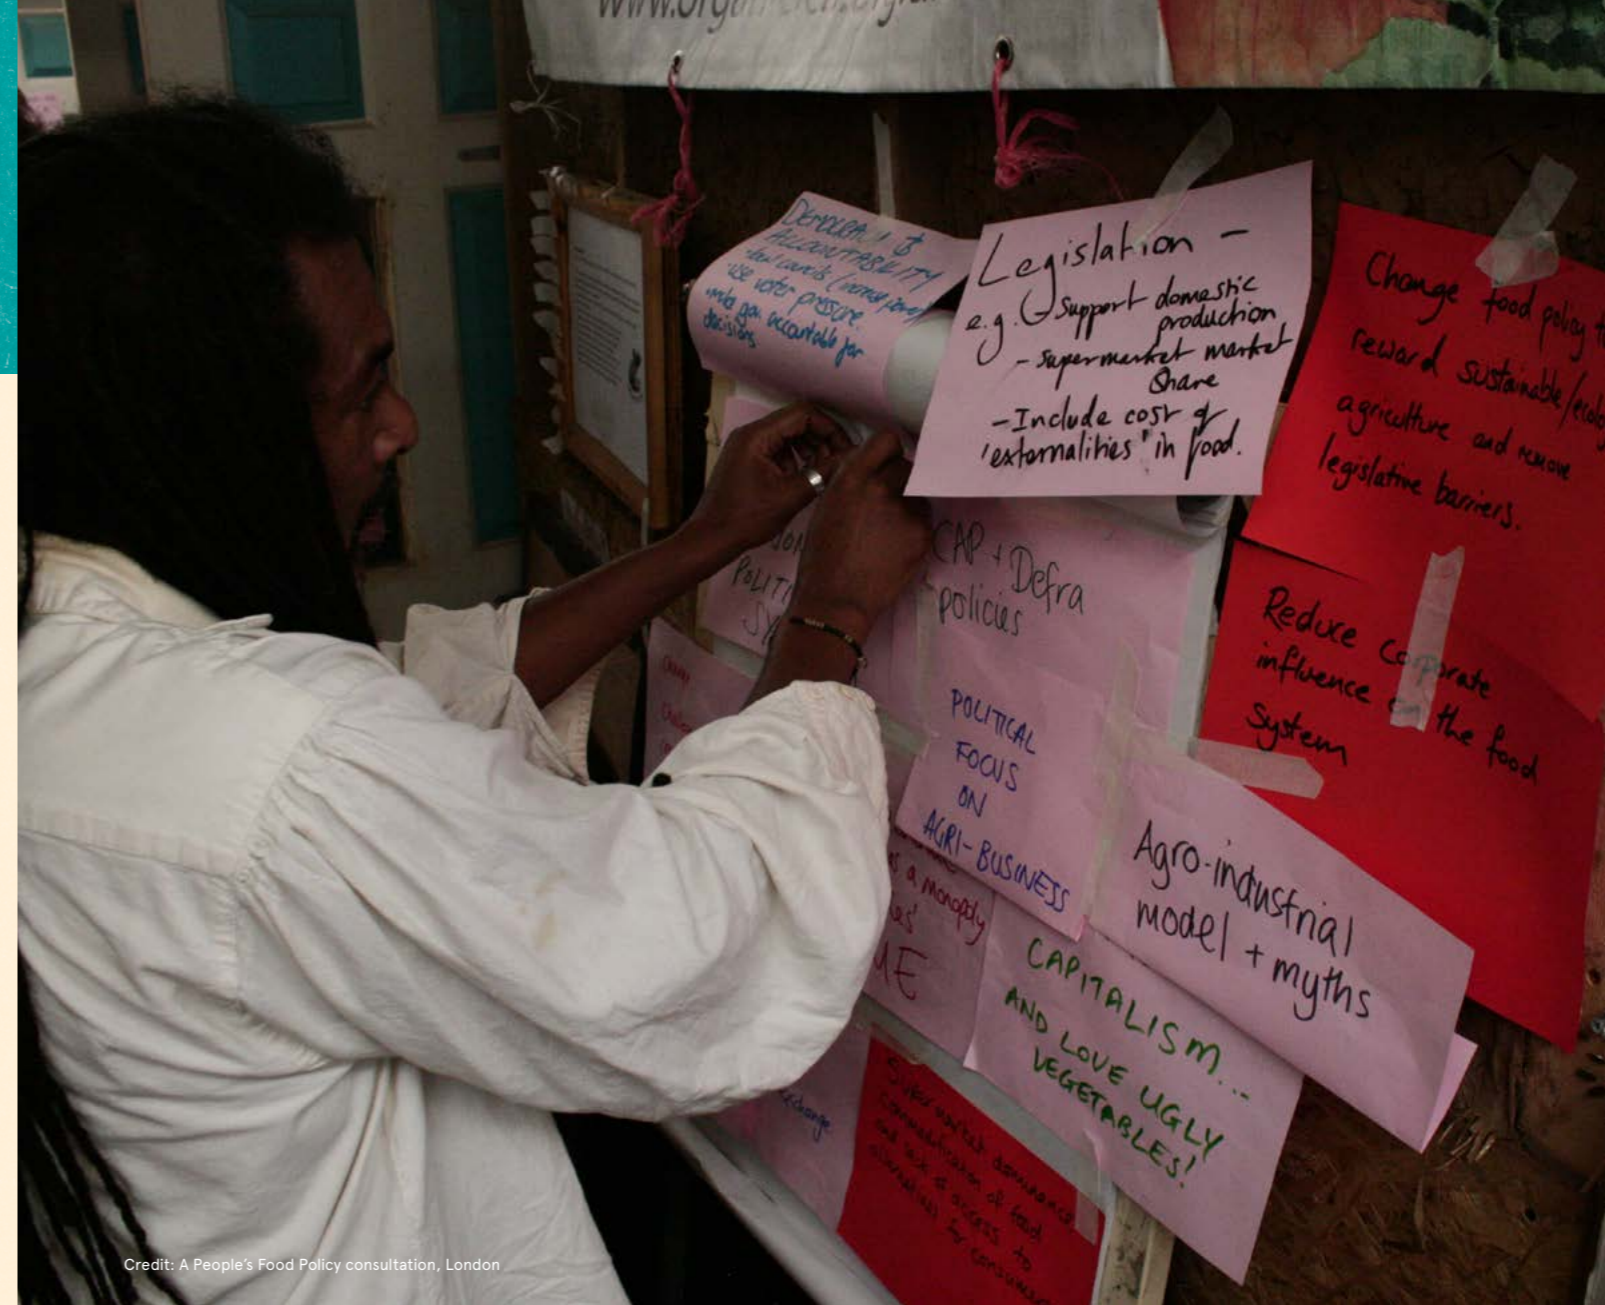 DEMOCRACY &
ACCOUNTABILITY
use voter pressure.
accountable for
decisions
Legislation -
e.g. Support domestic
production
- supermarket market
share
- Include cost of
'externalities' in food.
Change food policy
reward sustainable/
agriculture and remove
legislative barriers.
Reduce corporate
influence on the food
system
CAP + Defra
policies
POLITICAL
FOCUS
ON
AGRI-BUSINESS
Agro-industrial
model + myths
a monopoly
CAPITALISM...
AND LOVE UGLY
VEGETABLES!
exchange
Supermarket dominance
commodification of food
and lack of access to
alternatives for consumers
Credit: A People's Food Policy consultation, London